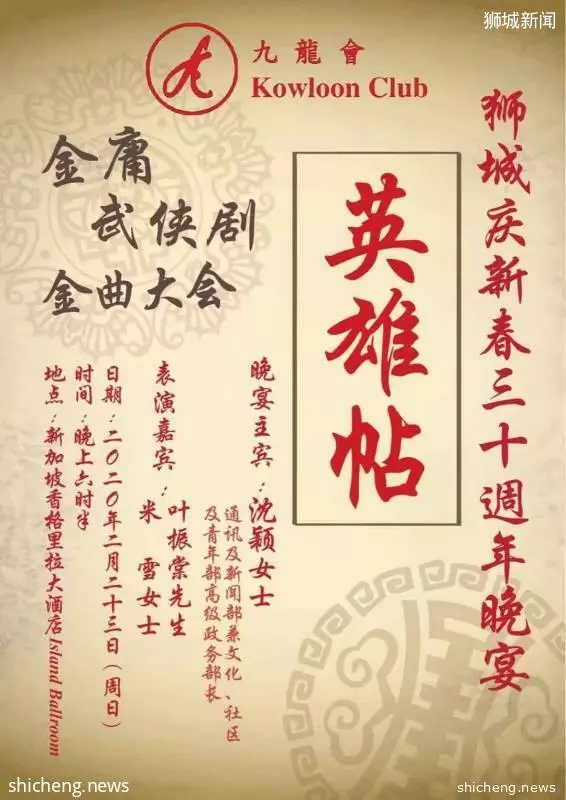 狮城新闻
九龍會
Kowloon Club
狮城庆新春三十週年晚宴
英雄帖
金庸
武侠剧
金曲大会
晚宴主宾：沈颖女士
通讯及新闻部兼文化、社区
及青年部高级政务部长
表演嘉宾：叶振棠先生
米 雪女士
日期：二〇二〇年二月二十三日（周日）
时间：晚上六时半
地点：新加坡香格里拉大酒店Island Ballroom
shicheng.news
shicheng.news